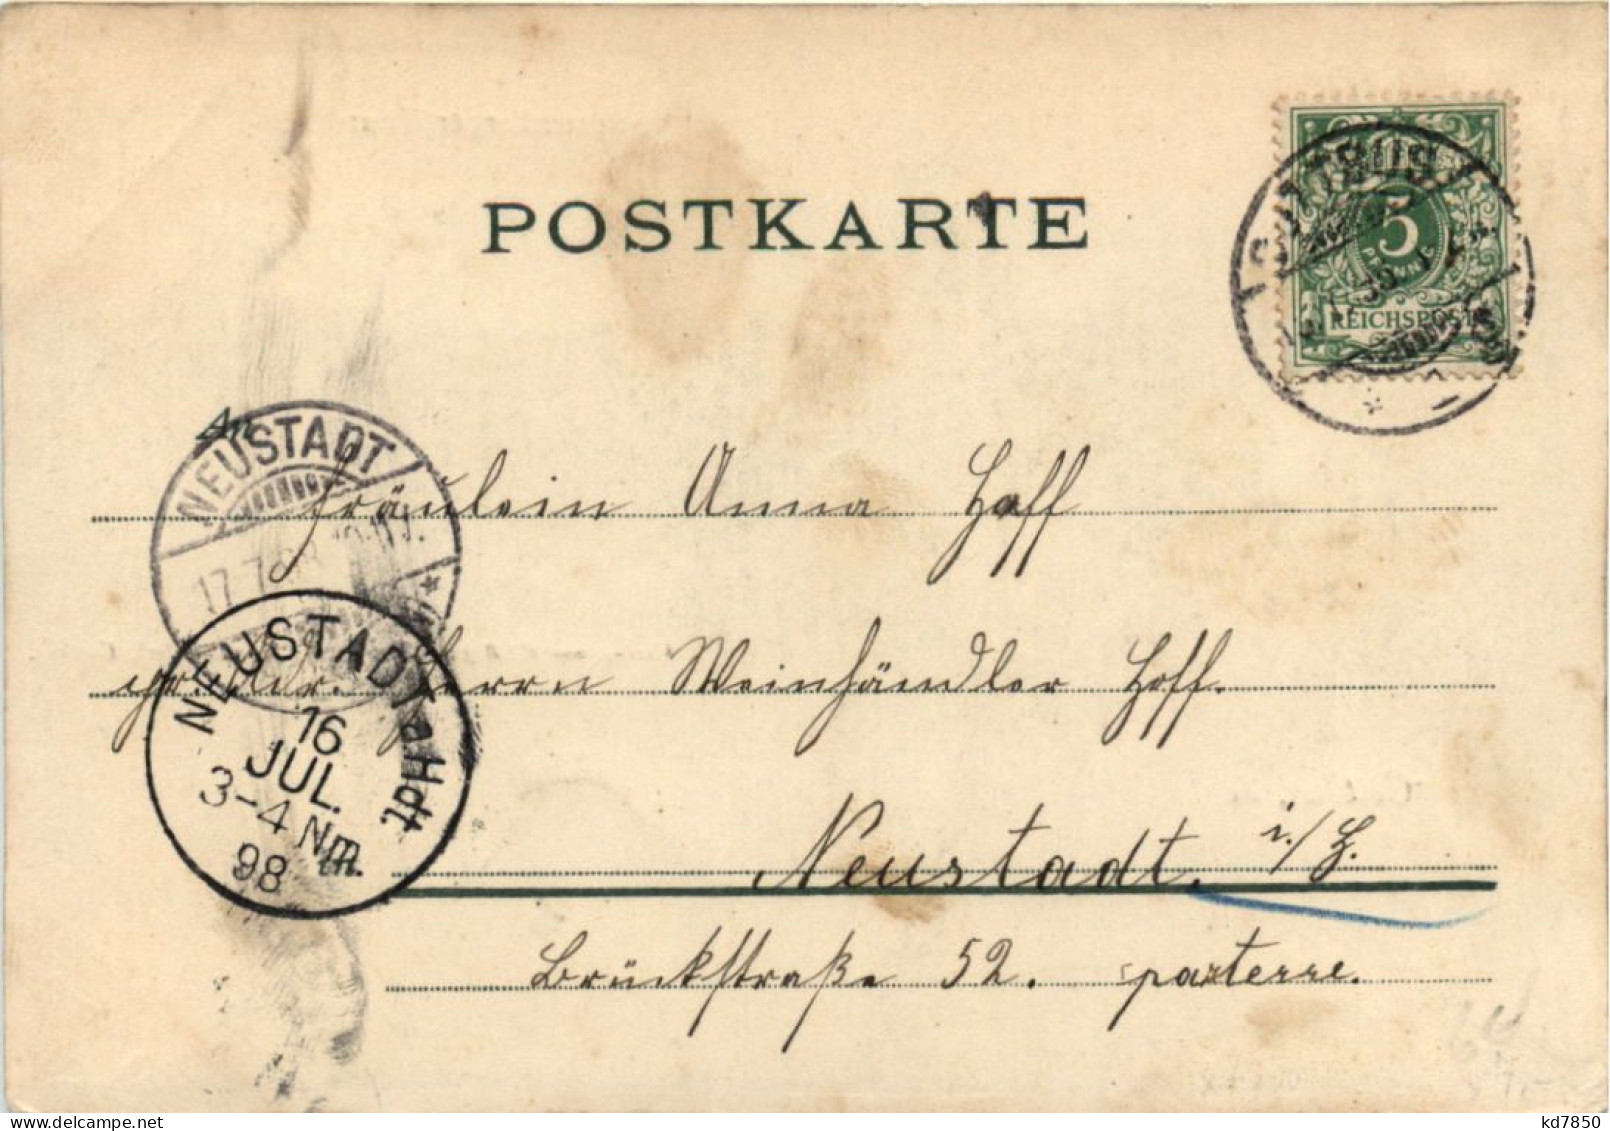 POSTKARTE
5
PFENNIG
REICHSPOST
An
NEUSTADT
17.7.98
Fräulein Anna Hoff
Herrn Weinhändler Hoff.
NEUSTADT a Hdt
16
JUL.
3-4 Nm.
98
Neustadt. i./H.
Brückstraße 52. parterre.
kd7850